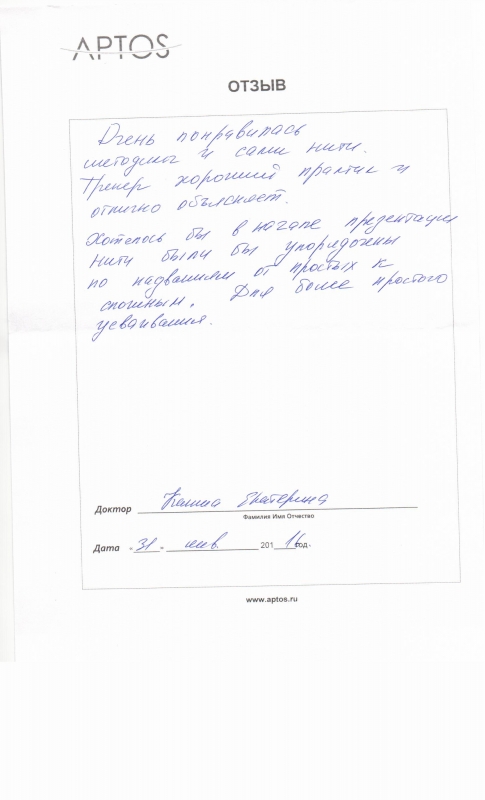 APTOS
ОТЗЫВ
Очень понравилась
методика и сами нити.
Тренер хороший практик и
отлично объясняет.
Хотелось бы в начале презентации
нити были бы упорядожны
по надваниям от простых к
сложным. Для более простого
усваивания.
Доктор Екатерина
Фамилия Имя Отчество
Дата «31» янв. 2016 год.
www.aptos.ru